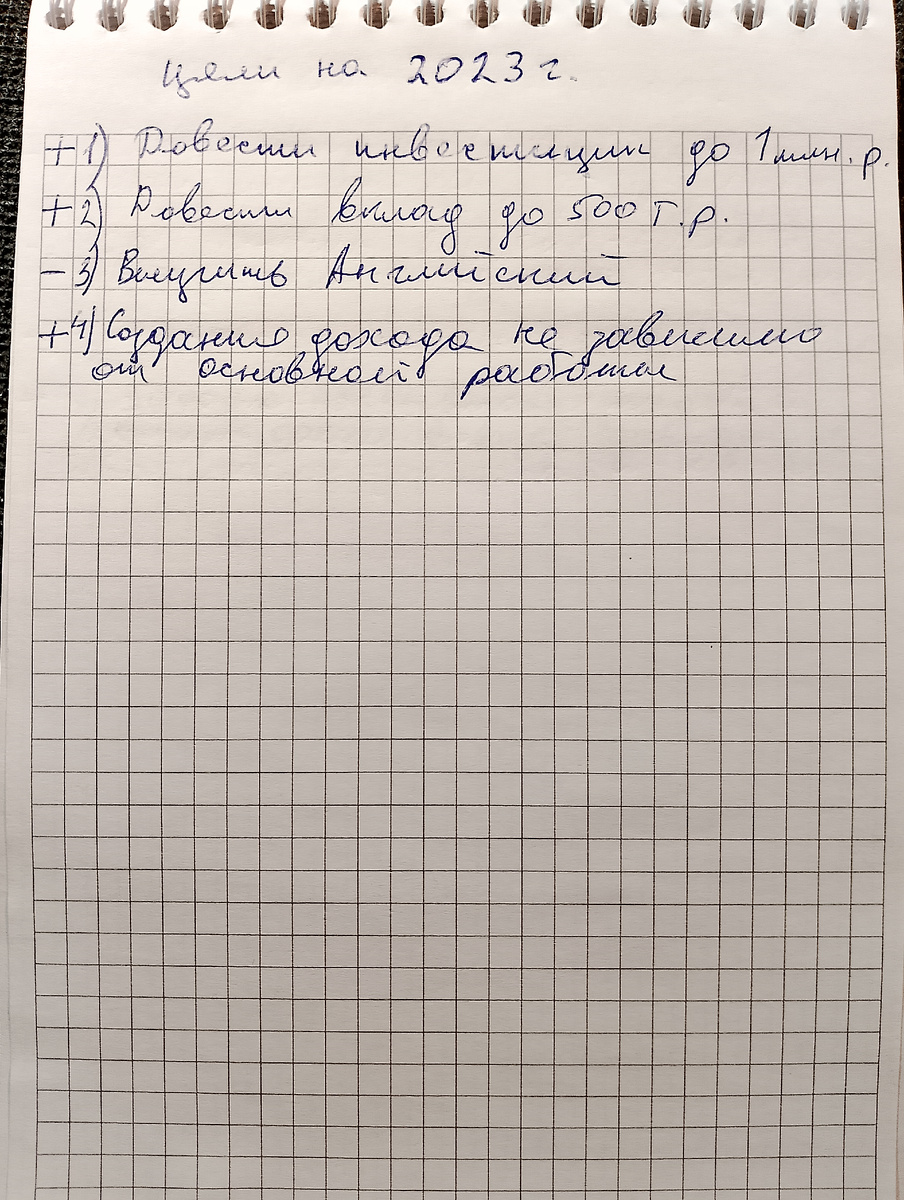 Цели на 2023 г.
+ 1) Довести инвестиции до 1 млн. р.
+ 2) Довести вклад до 500 т.р.
- 3) Выучить Английский
+ 4) Создания дохода не зависимо
от основной работы